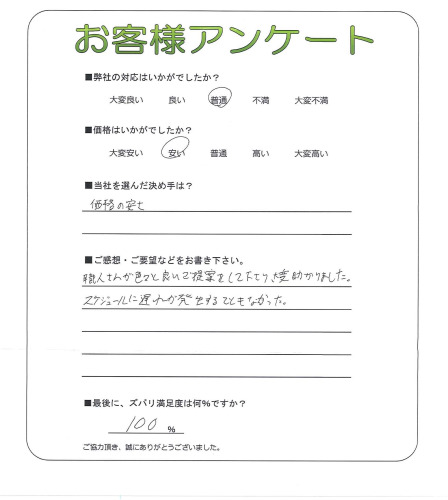 お客様アンケート
■弊社の対応はいかがでしたか?
大変良い 良い 普通 不満 大変不満
■価格はいかがでしたか?
大変安い 安い 普通 高い 大変高い
■当社を選んだ決め手は?
価格の安さ
■ご感想・ご要望などをお書き下さい。
職人さんが色々と良い提案をして下さり、大変助かりました。
スケジュールに遅れが発生することもなかった。
■最後に、ズバリ満足度は何%ですか?
100 %
ご協力頂き、誠にありがとうございました。